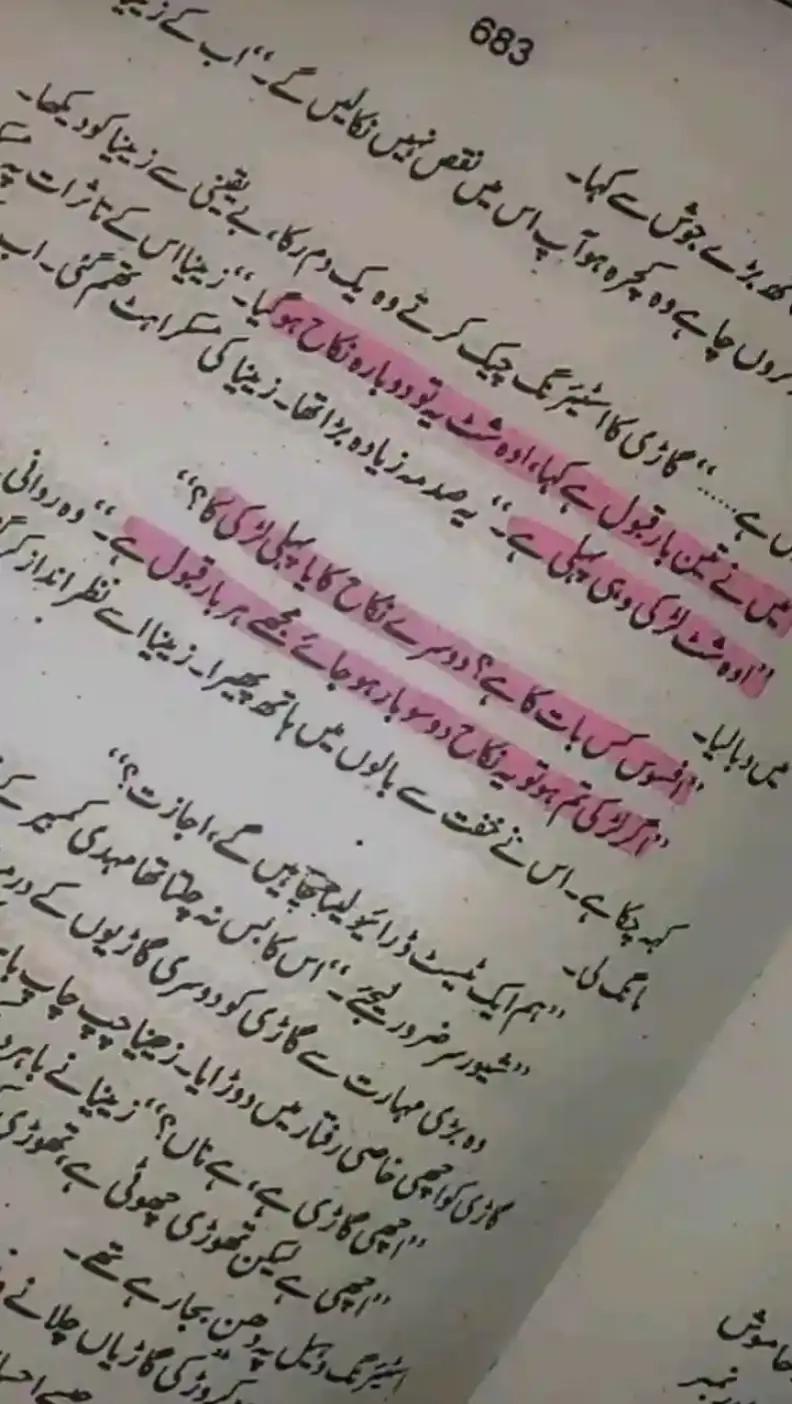 683
نقص نہیں نکالیں گے۔“ اب کے
بڑے جوش سے کہا۔
کروں چاہے وہ کچرہ ہو آپ اس میں
گاڑی کا اسٹیئرنگ چیک کرتے وہ یک دم رکا، بے یقینی سے زینیا کو دیکھا۔
ہے.....“
میں نے تین بار قبول ہے کہا، اوہ شٹ یہ تو دوبارہ نکاح ہو گیا۔“ زینیا اس کے تاثرات پہ
”اوہ شٹ لڑکی وہی پہلی ہے۔“ یہ صدمہ زیادہ بڑا تھا۔ زینیا کی مسکراہٹ تھم گئی۔ اب
میں دبا لیا۔
”افسوس کس بات کا ہے؟ دوسرے نکاح کا یا پہلی لڑکی کا؟“
”اگر لڑکی تم ہو تو یہ نکاح دو سو بار ہو جائے مجھے ہر بار قبول ہے۔“ وہ روانی
کہہ چکا ہے۔ اس نے خفت سے بالوں میں ہاتھ پھیرا۔ زینیا اسے نظر انداز کر
مانگ لی۔
”ہم ایک ٹیسٹ ڈرائیو لینا چاہیں گے، اجازت؟“
”شیور سر ضرور لیجئے۔“ اس کا بس نہ چلتا تھا مہدی کمبیر کے
وہ بڑی مہارت سے گاڑی کو دوسری گاڑیوں کے
گاڑی کو اچھی خاصی رفتار میں دوڑایا۔ زینیا چپ چاپ
”اچھی گاڑی ہے، ہے ناں؟“ زینیا نے باہر
”اچھی ہے لیکن تھوڑی چھوٹی ہے، تھوڑی
اسٹیئرنگ وہیل پہ دھن بجا رہے تھے۔
کروڑ کی گاڑیاں چلانے
خاموش
نمبر